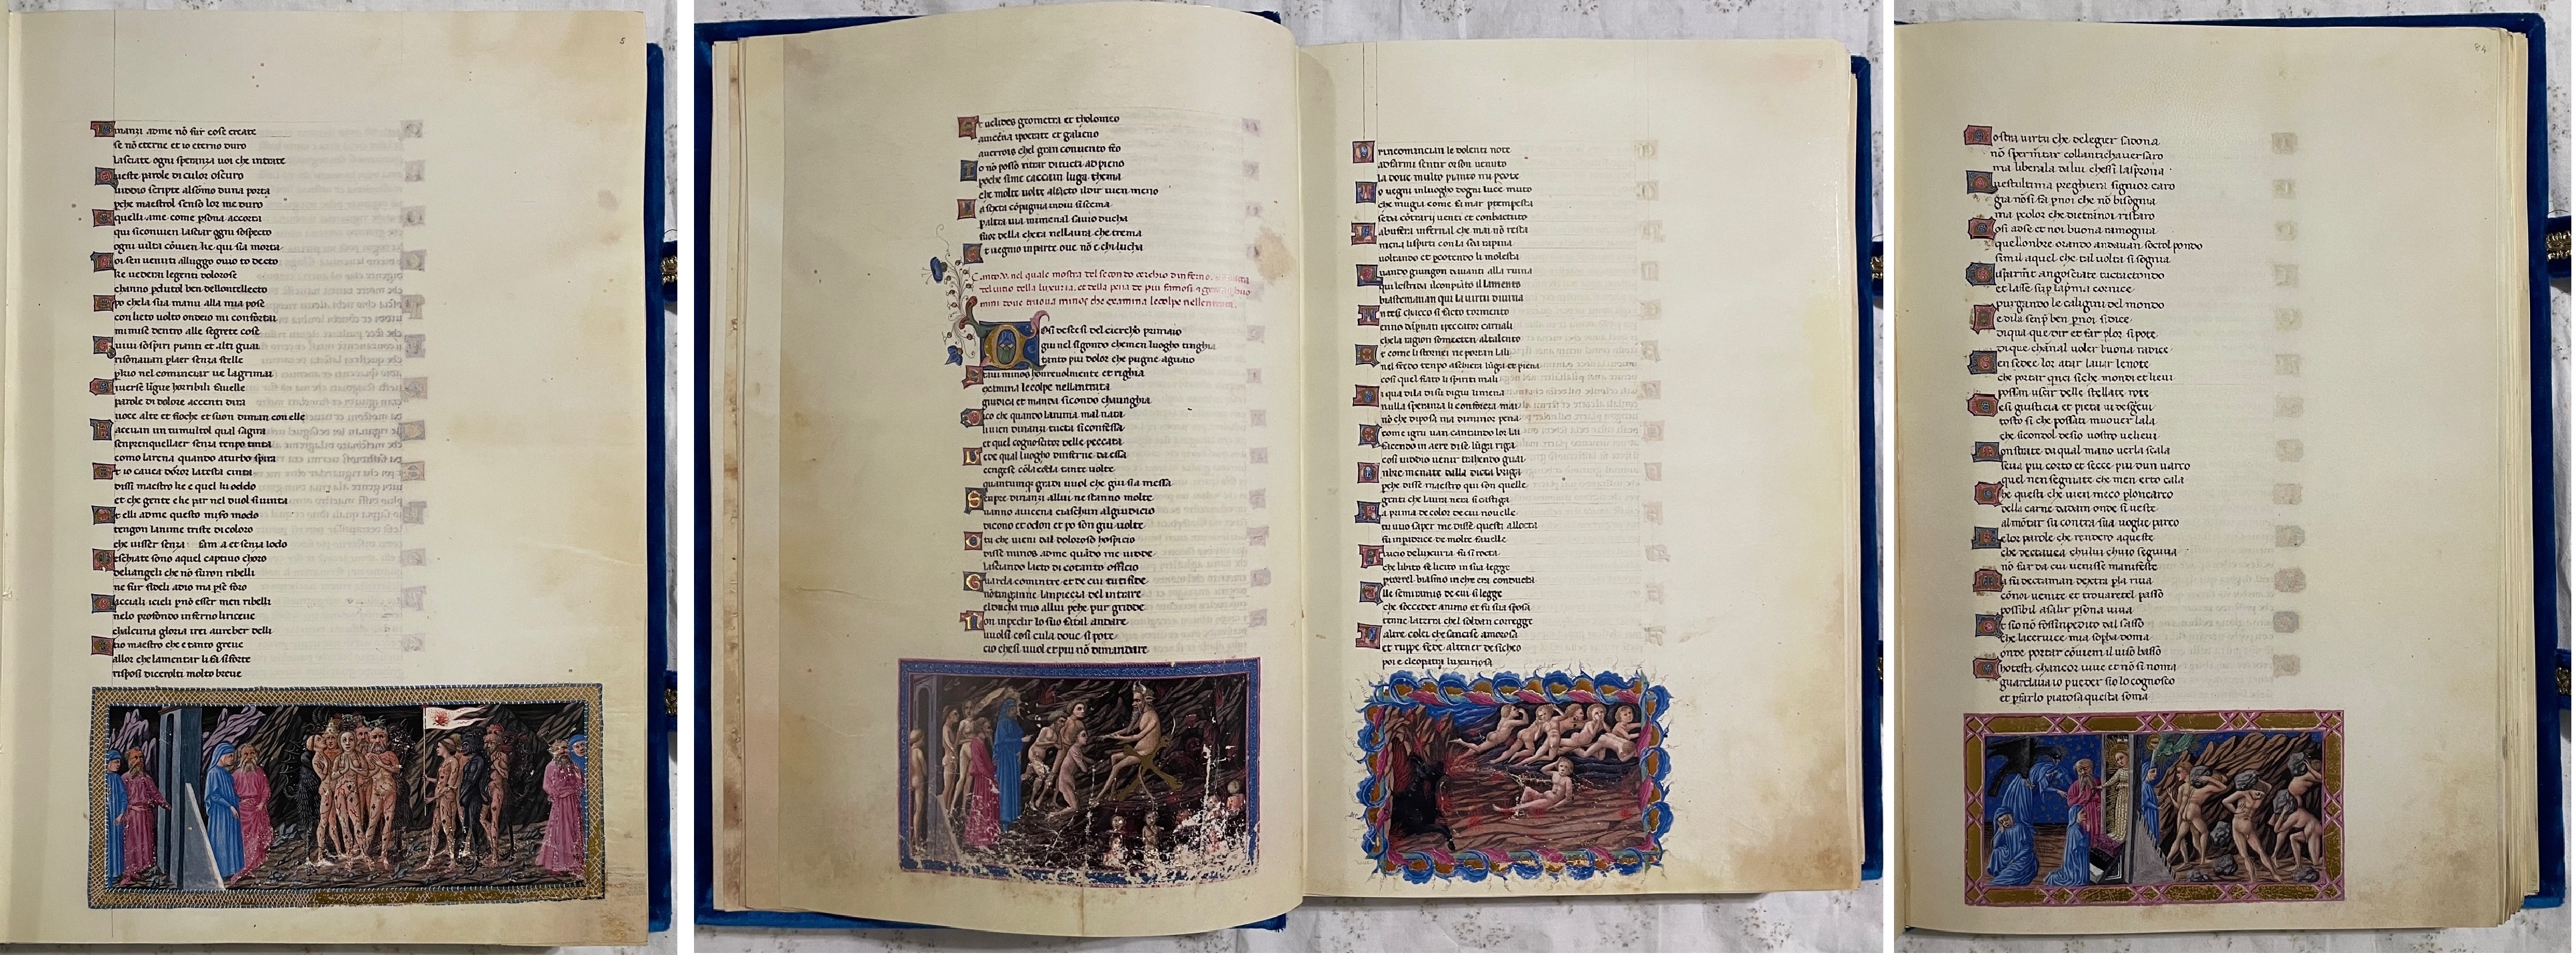 5
Inanzi adme nō fur cose create
se nō eterne et io eterno duro
lasciate ogni speranza voi che intrate
Queste parole di culor oscuro
viddio scripte alsōmo duna porta
pche maestrol senso lor me duro
Equelli ame come psona accorta
qui siconuien lasciar ogni sospecto
ogni vilta cōuien ke qui sia morta
Noi sen venuti alluggo ouio to decto
ke vederai legenti dolorose
channo pdutol ben dellontellecto
Et po chela sua manu alla mia pose
con lieto volto ondeio mi confortai
mi mise dentro alle segrete cose
Quiui sospiri pianti et alti guai
risonauan plaer senza stelle
phio nel cominciar ne lagrimai
Diuerse līgue horribili fauelle
parole di dolore accenti dira
uoce alte et fioche et suon diman con elle
Faceuan un tumultol qual sagira
senpenquellaer senza tenpo tinta
como larena quando aturbo spira
Et io cauea dōror latesta cinta
dissi maestro ke e quel kuoddo
et che gente che par nel duol siuinta
Et elli adme questo miso modo
tengon lanime triste di coloro
che uisser senza fama et senza lodo
Meschiate sono aquel captiuo choro
deliangeli che nō furon ribelli
ne fur fideli adio ma pse foro
Cacciali icieli pnō esser men ribelli
nelo profondo inferno liriceue
chalcuna gloria irei aureber delli
Et io maestro che e tanto greue
allor che lamentar li fa siforte
risposi dicerolti molto breue
Et uclides geometra et tholomeo
auicēna ypocrate et galieno
auerrois chel gran conuento feo
Io nō posso ritrar di tucti ad pieno
poche sime cacciam luga thema
che molte uolte alfacto ildir uien meno
La sexta cōpagnia indui siscema
paltra uia mimenal sauio ducha
fuor della cheta nellaura che trema
Et uegnio inparte oue nō e chi lucha
Canto .V. nel quale mostra del secondo cerchio dinferno
del uitio della luxuria. et della pena de piu famosi
mini doue truoua minos che examina lecolpe nellentrata.
Cosi descesi del cierchio primaio
giu nel sigondo chemen luogho cinghia
tanto piu dolor che pugne aguaio
Staui minos horreuolmente et righia
examina lecolpe nellantrata
giudica et manda sicondo chaunghia
Dico che quando lanima mal nata
liuien dinanzi tucta siconfessa
et quel cognoscitor delle peccata
Vede qual luogho dinferno da essa
cengese cōla coda tante uolte
quantumq; gradi uuol che giu sia messa
Senpre dinanzi allui ne stanno molte
uanno auicena ciaschun algiudicio
dicono et odon et po son giu uolte
O tu che uieni dal doloroso hospicio
disse minos adme quādo me uidde
lasciando lacto di cotanto officio
Guarda comintre et de cui tu tifide
nō tinganne lanpieza del intrare
elducha mio allui pche pur gridde
Non inpedir lo suo fatal andare
uuolsi cosi cula doue si pote
cio chesi uuol et piu nō dimandare
Or incomincian le dolenti note
adfarmi sentir or son uenuto
la doue multo pianto mi pcote
Io uegni inluogho dogni luce muto
che mugia come fa mar ptempesta
seda cōtrarij uenti et conbactuto
Labufera infernal che mai nō resta
mena lispiriti con la sua rapina
uoltando et pcotendo li molesta
Quando giungon dauanti alla ruina
qui lestrida ilcompiāto il lamento
biastemauan qui la uirtu diuina
Intesi chacco si facto tormento
enno dāpnati ipeccator carnali
chela ragion someceten altalento
Et come li stornei ne portan lali
nel freddo tempo aschiera larga et piena
cosi quel fiato li spiriti mali
Di qua di la di su di giu limena
nulla speranza li conforta mai
nō che di posa ma di minor pena
Et come igru uan cantando lor lai
facendo in aere di se lūga riga
cosi uiddio uenir trahendo guai
Onbre menate dalla dicta briga
pche disse maestro qui son quelle
genti che laura nera si castiga
La prima de color de cui nouelle
tu uuo saper me disse questi allocta
fu inpadrice de molte fauelle
Auicio deluxuria fu si rocta
che libito fe licito in sua legge
pterrel biasmo in che era conducta
Elle semiramis de cui si legge
che soccedet anino et fu sua sposa
tenne laterra chel soldan correggge
Laltre colei che sancise amorosa
et ruppe fede alcener de sicheo
poi e cleopatra luxuriosa
84
Nostra uirtu che delegier sadona
nō spermētar collantichauersaro
ma liberala dalui chessi lasprona
Questultima preghiera signuor caro
gia nōsi fa pnoi che nō bisognia
ma pcolor che dietrinoi ristaro
Cosi adse et noi buona ramognia
quellonbre orando andauan soctol pondo
simil aquel che tal uolta si sognia
Disparmēt angosciate tucta tondo
et lasse sup laprima cornice
purgando le caligini del mondo
Se dila senp ben pnoi sidice
diqua que dir et far plor si pote
di que channal uoler buona radice
Ben sedee lor atar lauar lenote
che portar quici siche mondi et lieui
possan uscir delle stellate rote
Desi giusticia et pieta ui desgreui
tosto si che possati muouer lala
che sicondol desio uostro uelieui
Monstrate da qual mano uerla scala
seua piu corto et secce piu dun uarco
quel nen segniate che men erto cala
Che questi che uien meco ploncarco
della carne dadam onde si ueste
al mōtar su contra sua uoglie parco
Le lor parole che rendero aqueste
che dectauea chului chuio seguiua
nō fur da cui uenisse manifeste
Ma fu decta man dextra pla riua
cō noi uenite et trouaretel passo
possibil asalir psona uiua
Et sio nō fossinpedito dal sasso
che lacceruice mia supba doma
onde portar cōuiem il uiso basso
Chotesti chancor uiue et nō si noma
guardaua io pueder sio lo cognosco
et pfarlo piatosa questa soma